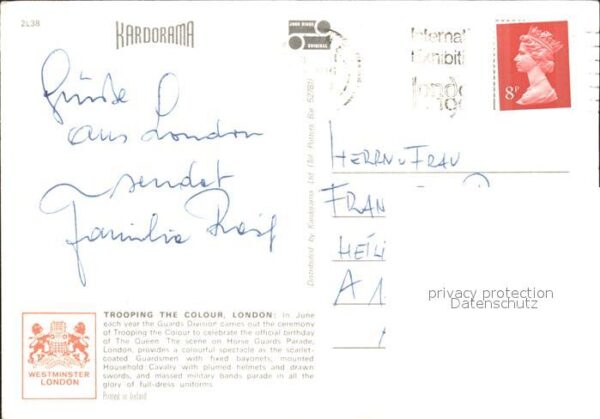 2L38
KARDORAMA
JOHN HINDE
ORIGINAL
Internat
Exhibiti
8P
Grüße
aus London
sendet
Familie
HERRN u FRAU
FRAN
HEILI
A 1
privacy protection
Datenschutz
Distributed by Kardorama Ltd (Tel Potters Bar 52781)
TROOPING THE COLOUR, LONDON: In June
each year the Guards Division carries out the ceremony
of Trooping the Colour to celebrate the official birthday
of The Queen. The scene on Horse Guards Parade,
London, provides a colourful spectacle as the scarlet-
coated Guardsmen with fixed bayonets, mounted
Household Cavalry with plumed helmets and drawn
swords, and massed military bands parade in all the
glory of full-dress uniforms.
WESTMINSTER
LONDON
Printed in Ireland